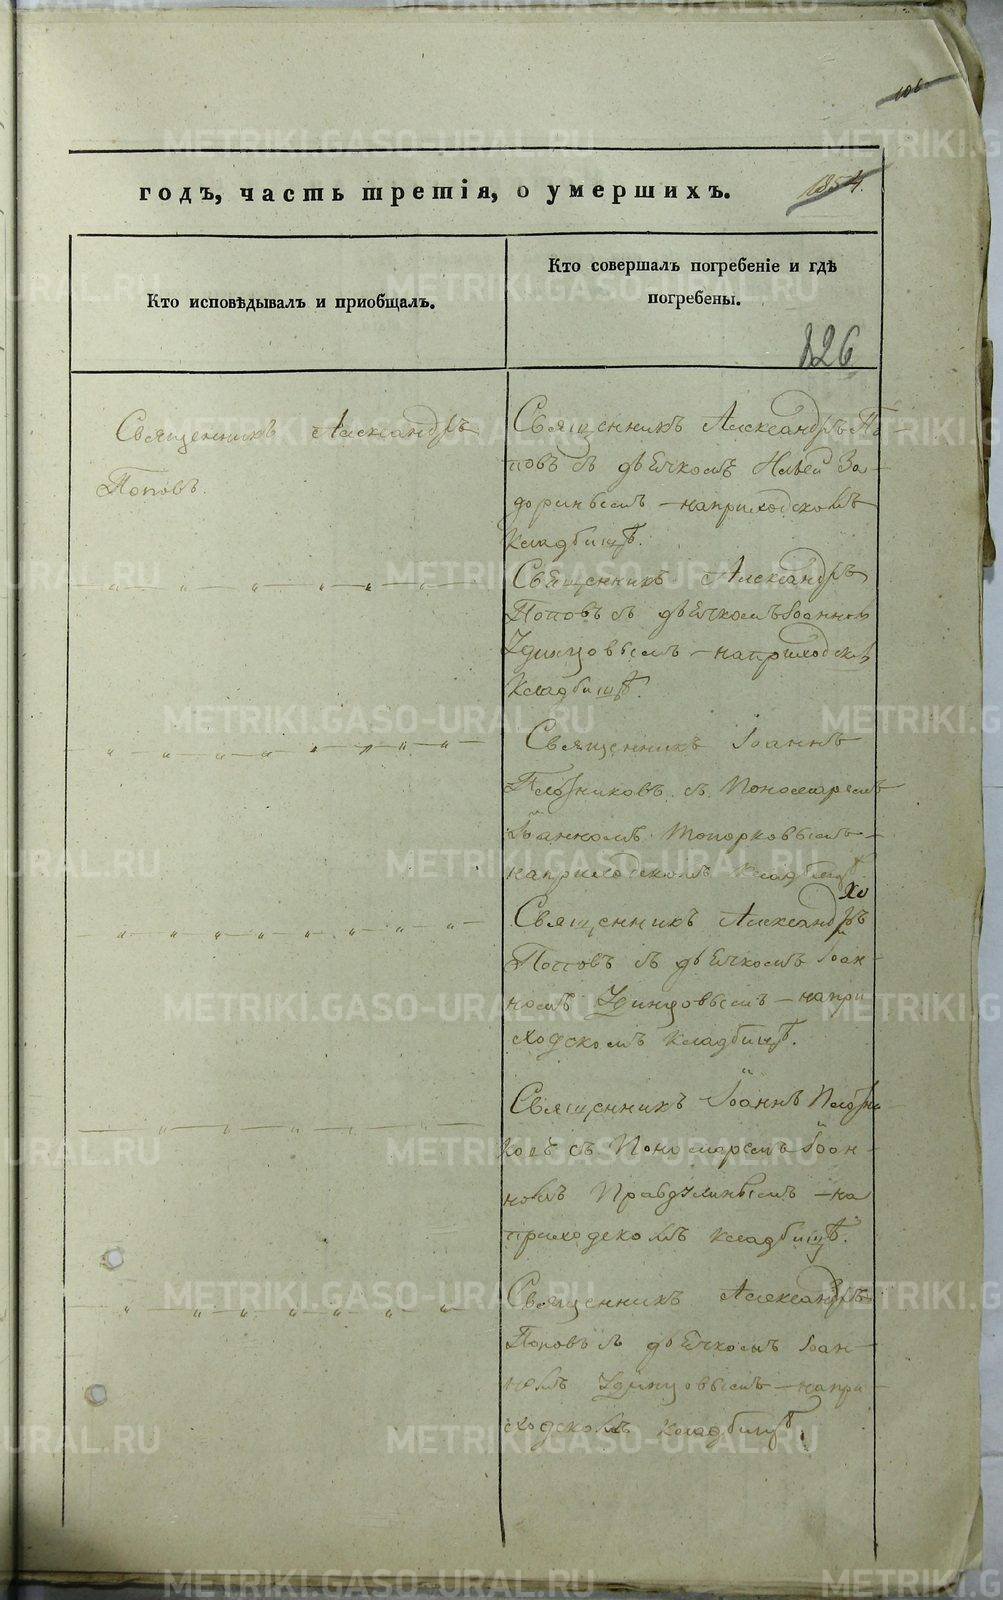 106
годъ, часть третія, о умершихъ.
1354.
Кто исповѣдывалъ и пріобщалъ.
Кто совершалъ погребеніе и гдѣ
погребены.
126
Священникъ Александръ
Поповъ.
Священникъ Александръ По-
повъ съ дьячкомъ Ильей За-
доринымъ – на приходскомъ
кладбищѣ.
Священникъ Александръ
Поповъ съ дьячкомъ Іоанномъ
Удинцовымъ – на приходскомъ
кладбищѣ.
Священникъ Іоаннъ
Плотниковъ съ Пономаремъ
Іоанномъ Топорковымъ –
на приходскомъ кладбищѣ.
Священникъ Александръ
Поповъ съ дьячкомъ Іоан-
номъ Удинцовымъ – на при
ходскомъ кладбищѣ.
Священникъ Іоаннъ Плотни
ковъ съ Пономаремъ Іоан-
номъ Правдухинымъ – на
приходскомъ кладбищѣ.
Священникъ Александръ
Поповъ съ дьячкомъ Іоан-
номъ Удинцовымъ – на при
ходскомъ кладбищѣ.
METRIKI.GASO-URAL.RU